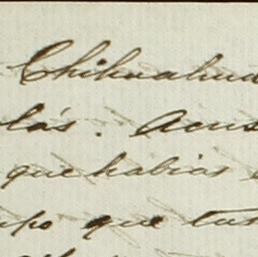 Chihuahua
lás. Acus
que habias
po que tus